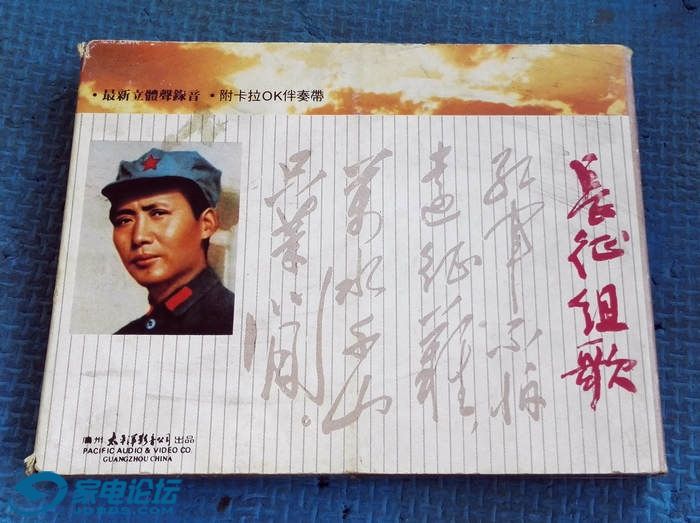 •最新立體聲錄音 •附卡拉OK伴奏帶
長征组歌
紅軍不怕
遠征難，
萬水千山
只等閒。
廣州太平洋影音公司出品
PACIFIC AUDIO & VIDEO CO.
GUANGZHOU CHINA
家电论坛
JDBBS.COM